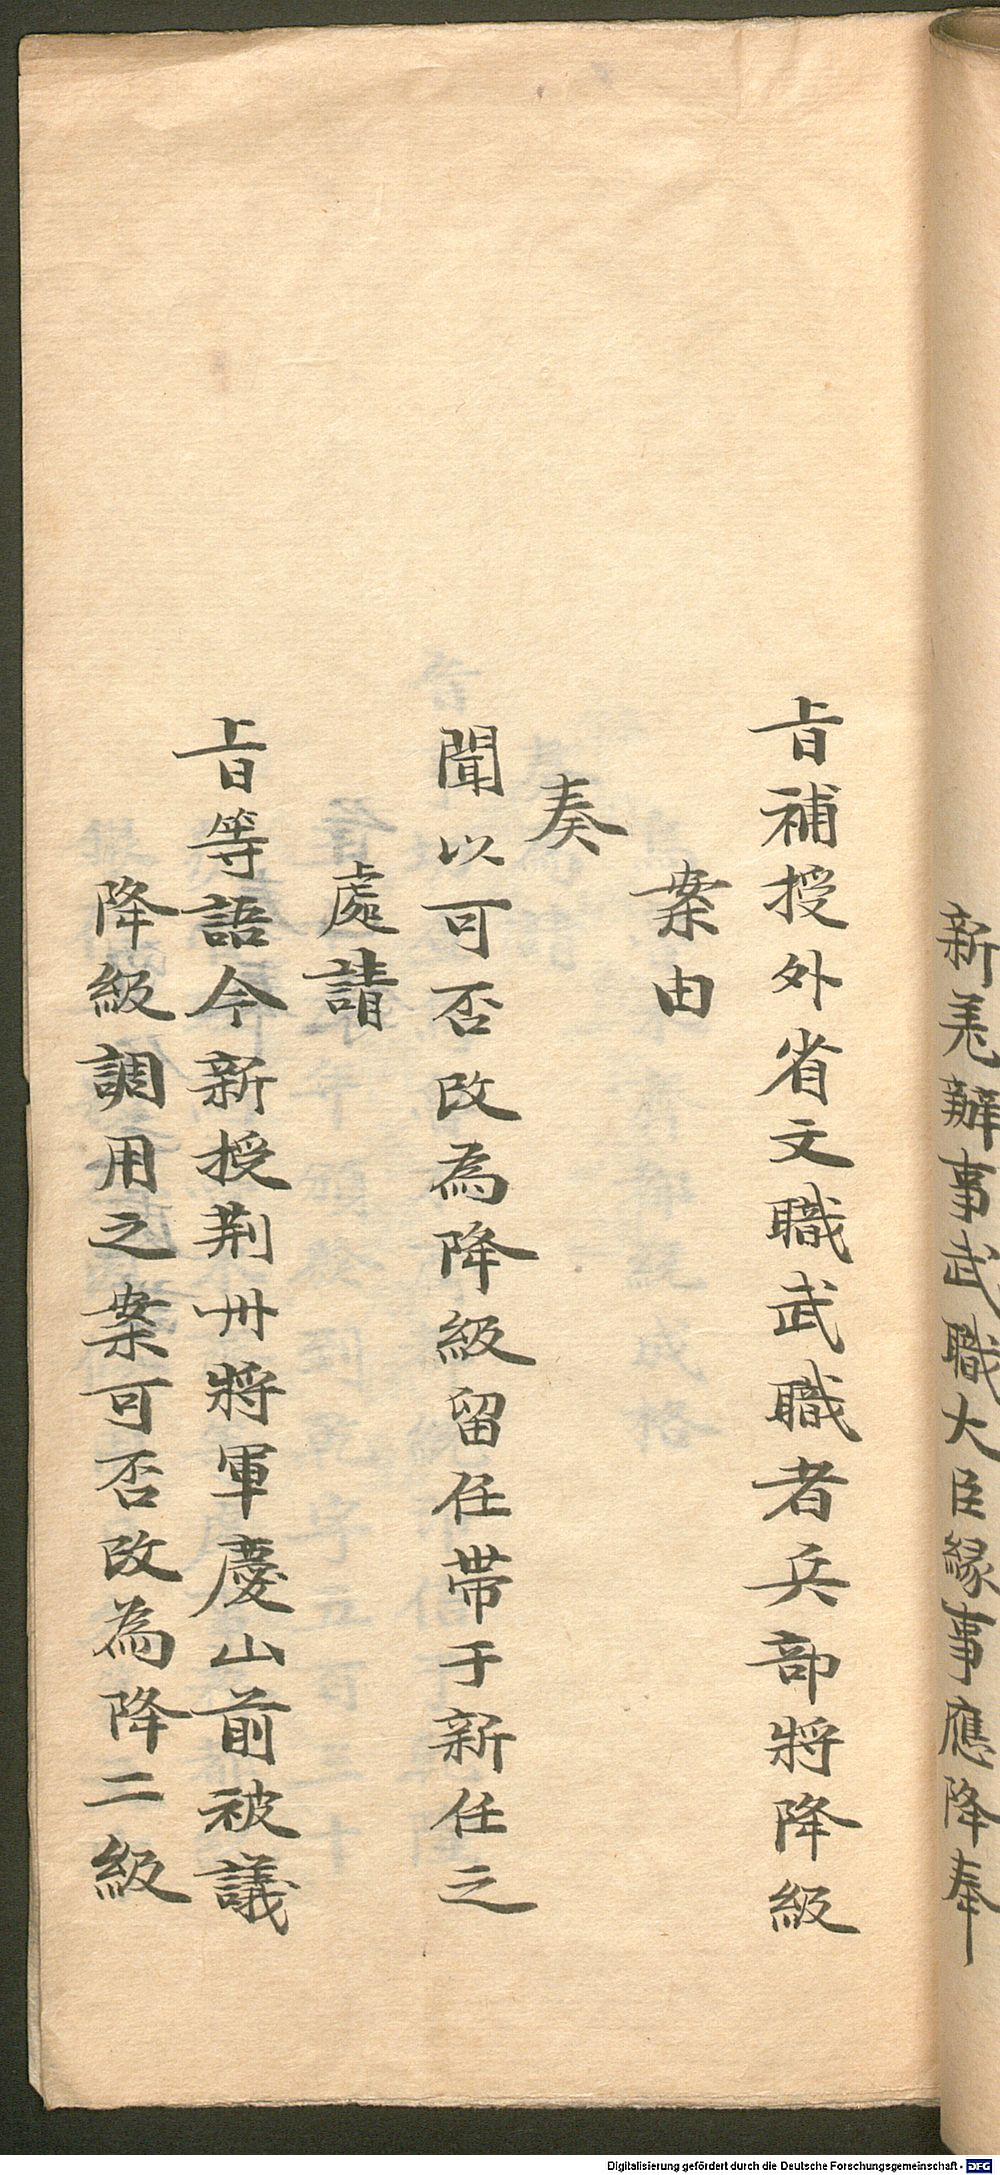 新羗辦事武職大臣緣事應降奉
旨補授外省文職武職者兵部將降級
案由
奏
聞以可否改為降級留任帶于新任之
處請
旨等語今新授荆州將軍慶山前被議
降級調用之案可否改為降二級
Digitalisierung gefördert durch die Deutsche Forschungsgemeinschaft - DFG